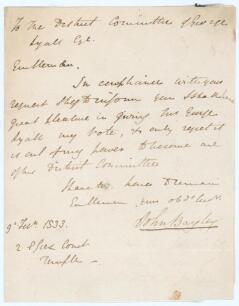 To The District Committee of George
Lyall Esq.
Gentlemen,
In compliance with your
request I beg to inform you I shall have
great pleasure in giving Mr. George
Lyall my vote, & only regret it
is out of my power to become one
of his District Committee
I have the honor to remain
Gentlemen, your obed. Servt.
John Bayley
9 1833.
2 Court
Temple